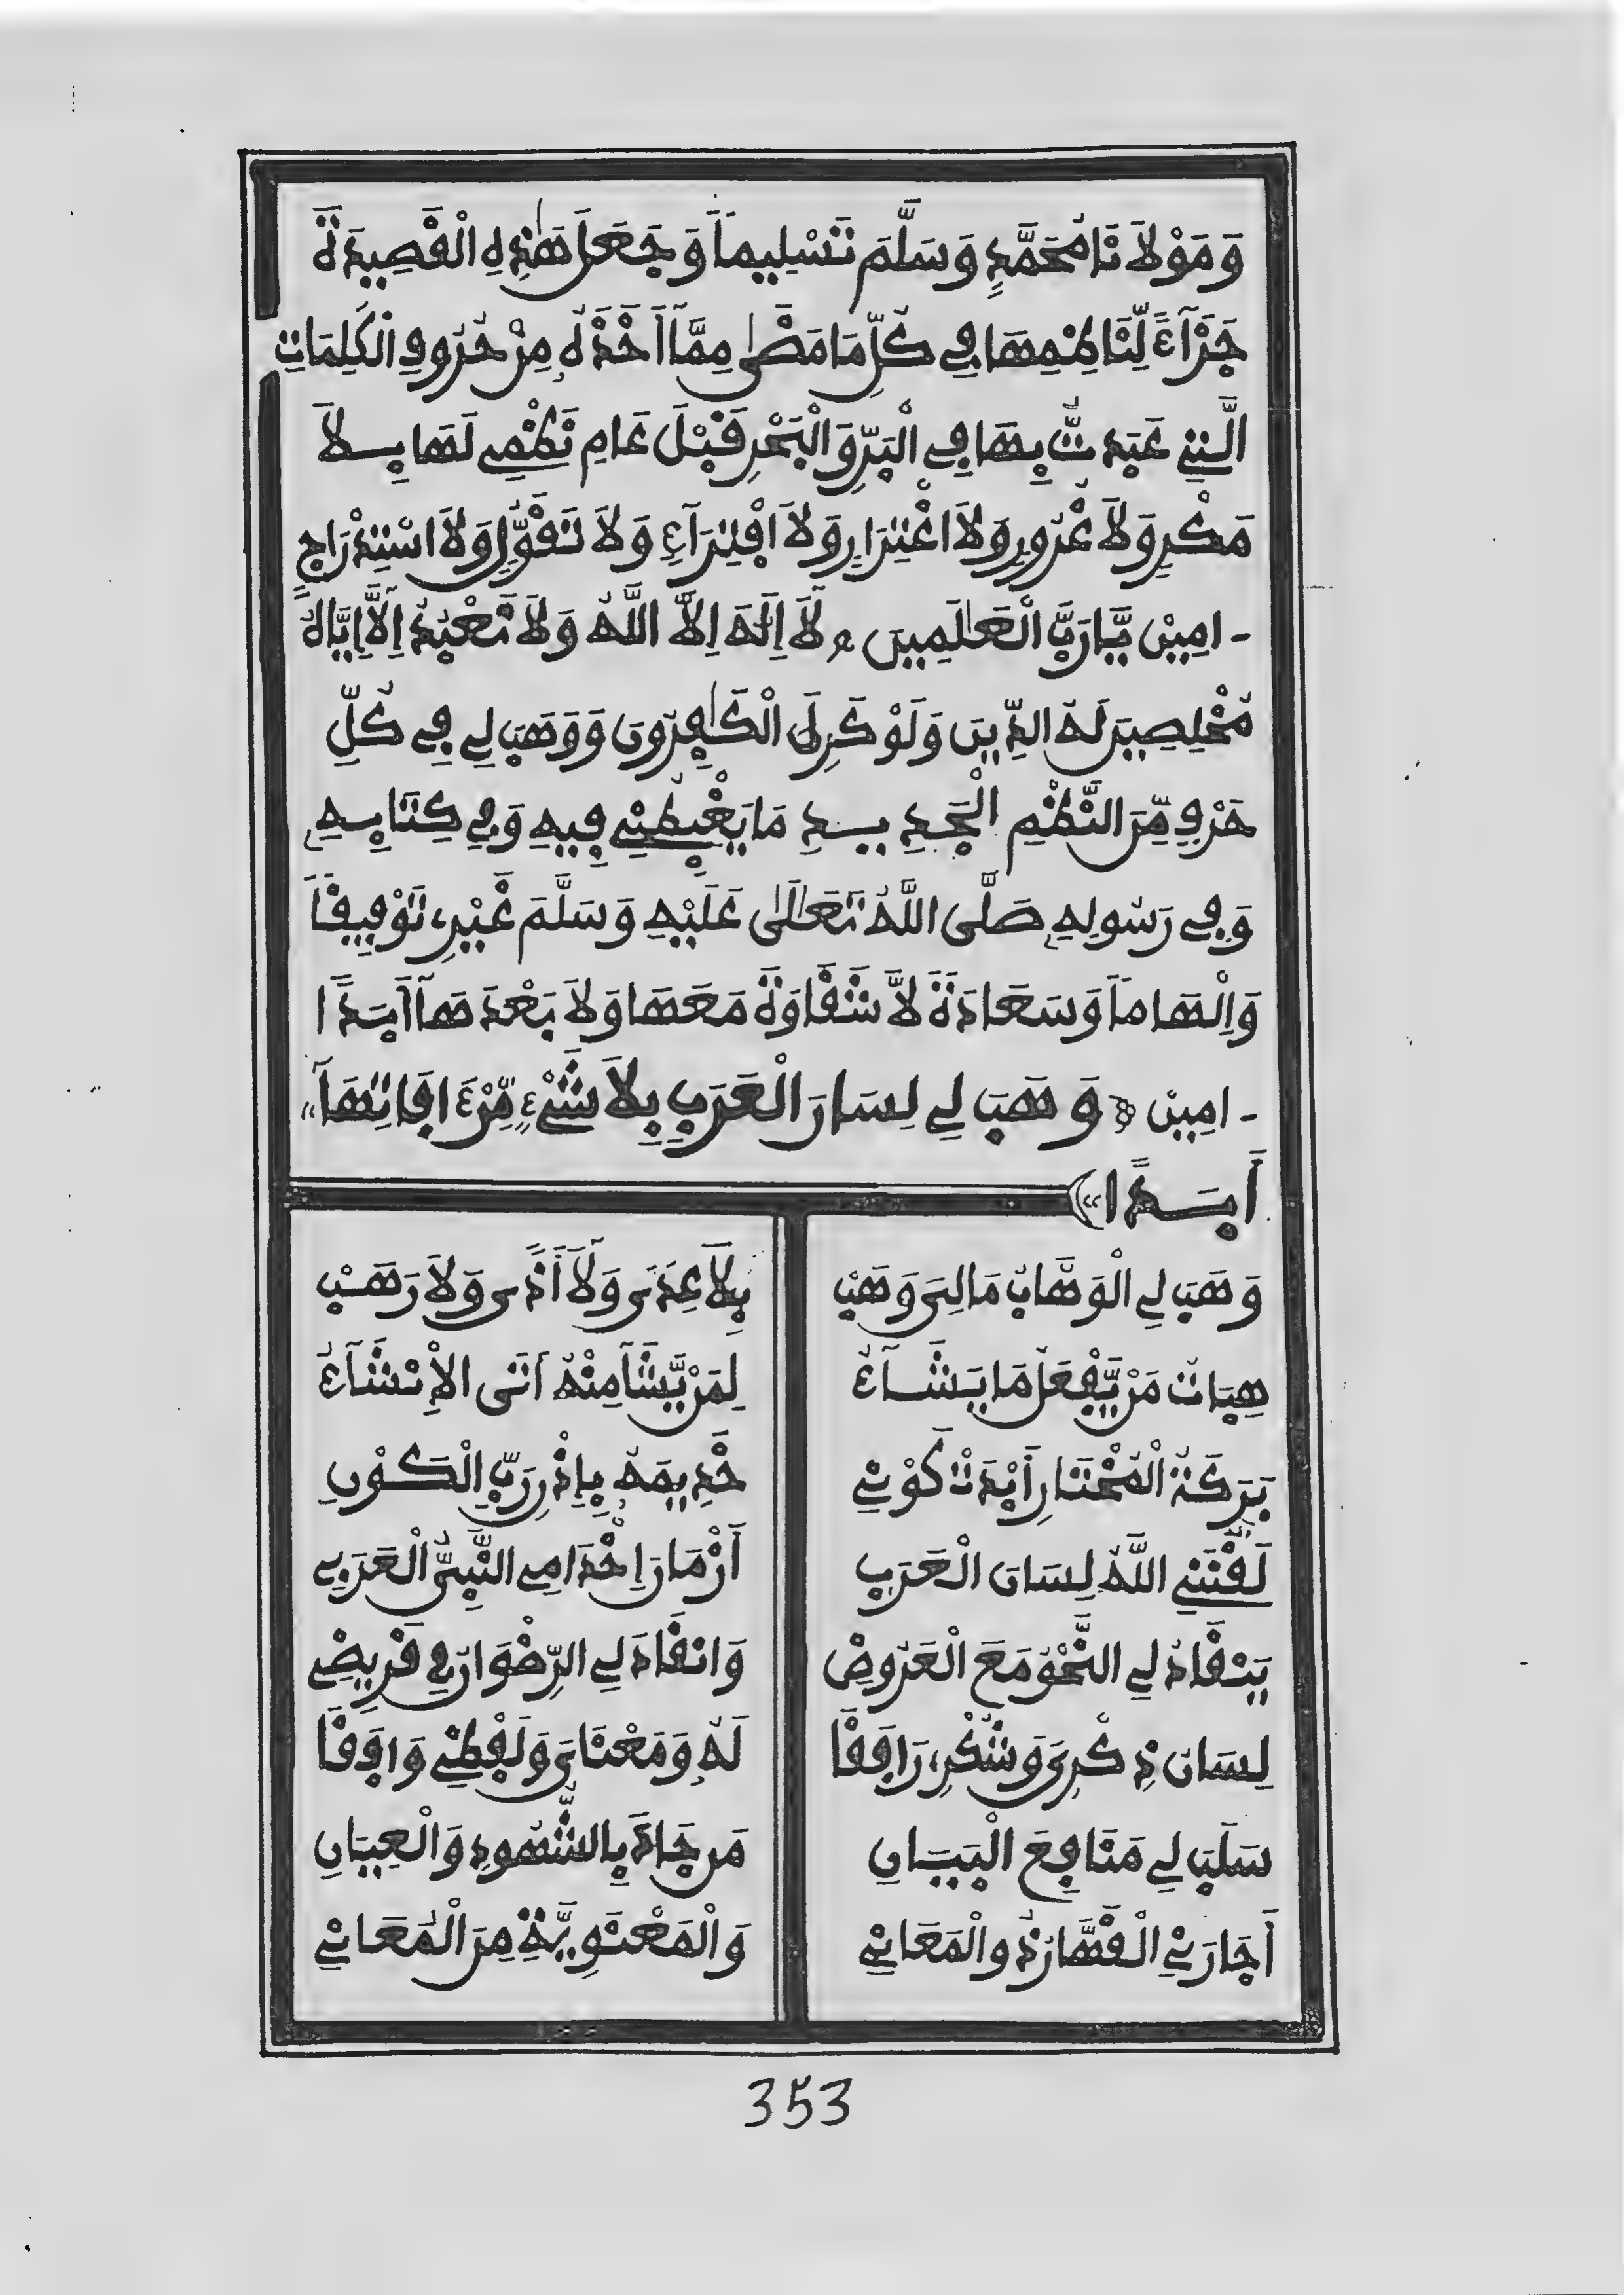 وَمَوْلَانَا مُحَمَّدٍ وَسَلَّمَ تَسْلِيماً وَجَعَلَ هَٰذِهِ الْقَصِيدَةَ
جَزَآءً لِّنَاظِمِهَا فِي كُلِّ مَا مَضَىٰ مِمَّا أَخَذَهُ مِنْ حُرُوفِ الْكَلِمَاتِ
الَّتِي عَبَدتُّ بِهَا فِي الْبَرِّ وَالْبَحْرِ قَبْلَ عَامِ نَظْمِي لَهَا بِلَا
مَكْرٍ وَلَا غُرُورٍ وَلَا اغْتِرَارٍ وَلَا افْتِرَآءٍ وَلَا تَقَوُّلٍ وَلَا اسْتِدْرَاجٍ
ـامِينْ يَّارَبَّ الْعَٰلَمِينَ لَآ إِلَٰهَ إِلاَّ اللَّهُ وَلَا نَعْبُدُ إِلَّآ إِيَّاهُ
مُخْلِصِينَ لَهُ الدِّينَ وَلَوْ كَرِهَ الْكَٰفِرُونَ وَوَهَبَ لِي فِي كُلِّ
حَرْفٍ مِّنَ النَّظْمِ الْجَدِيدِ مَا يَغْبِطُنِي فِيهِ وَفِي كِتَابِهِ
وَفِي رَسُولِهِ صَلَّى اللَّهُ تَعَالَىٰ عَلَيْهِ وَسَلَّمَ غَيْرِي تَوْفِيقاً
وَإِلْهَاماً وَسَعَادَةً لَّا شَقَاوَةَ مَعَهَا وَلَا بَعْدَهَآ أَبَدًا
ـامِينْ وَهَبَ لِي لِسَانَ الْعَرَبِ بِلَا شَيْءٍ مِّنْ ءَافَاتِهَآ
أَبَدًا))
وَهَبَ لِي الْوَهَّابُ مَالِيَ وَهَبْ بِلَا عِدًى وَلَآ أَذًى وَلَا رَهَبْ
هِبَاتُ مَنْ يَّفْعَلُ مَا يَشَآءُ لِمَنْ يَّشَا مِنْهُ أَتَى الْإِنْشَآءُ
بَرَكَةُ الْمُخْتَارِ أَبْدَتْ كَوْنِي خَدِيمَهُ بِإِذْنِ رَبِّ الْكَوْنِ
لَقَّنَنِي اللَّهُ لِسَانَ الْعَرَبِ أَزْمَانَ إِخْدَامِي النَّبِيَّ الْعَرَبِي
يَنْقَادُ لِي النَّحْوُ مَعَ الْعَرُوضِ وَانْقَادَ لِي الرِّضْوَانُ فِي قَرِيضِي
لِسَانُ ذِكْرِي وَشُكْرِي رَافَقَا لَهُ وَمَعْنَايَ وَلَفْظِي وَافَقَا
سَلَبَ لِي مَنَافِعَ الْبَيَانِ مَن جَادَ بِالشُّهُودِ وَالْعِيَانِ
أَجَارَنِي الْقَهَّارُ ذُو الْمَعَانِي وَالْمَعْنَوِيَّةِ مِنَ الْمُعَانِي
353